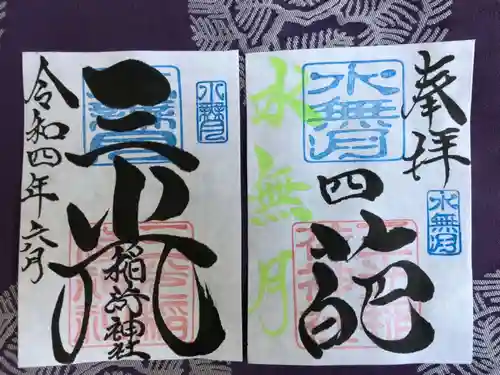 奉拝
水無月
水無月
四葩
水無月
水無月
水無月
三光
稲荷神社
令和四年六月